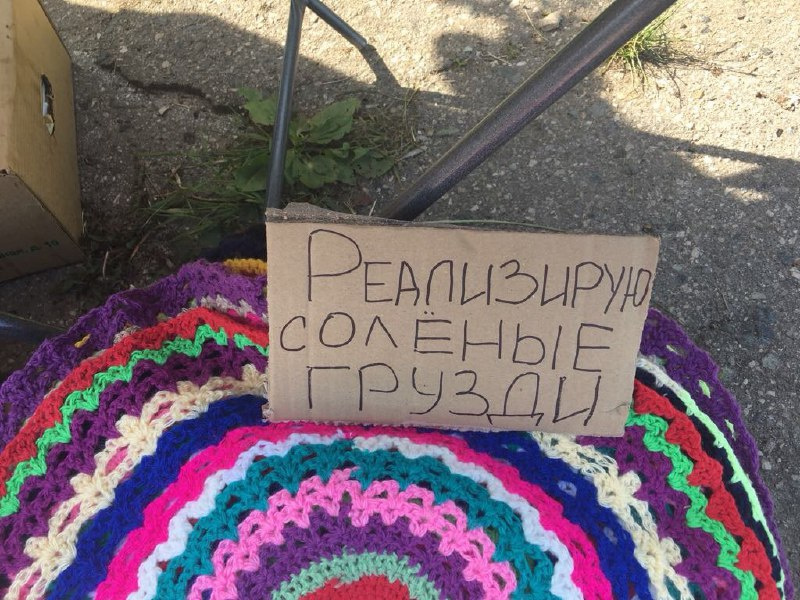 Реализирую
солёные
грузди